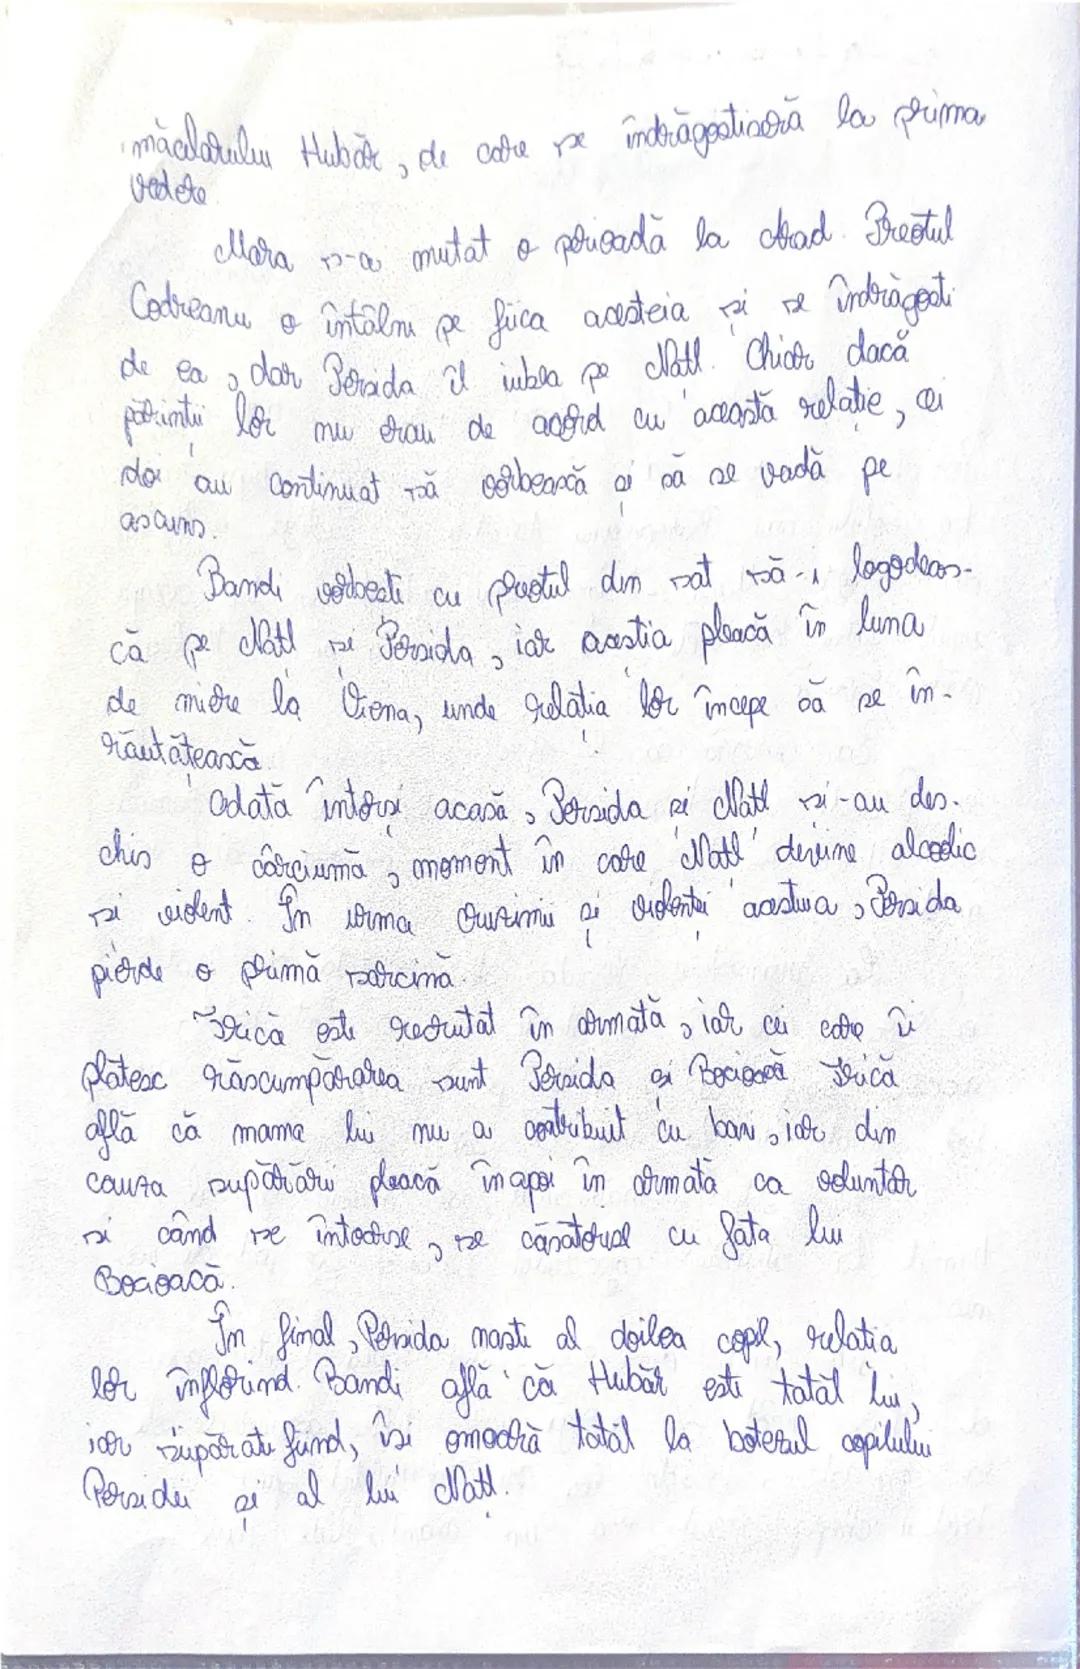 măcelarului Hubăr, de care se îndrăgostiseră la prima
vedere
Mara s-a mutat o perioadă la Arad. Preotul
Codreanu o întâlni pe fiica acesteia și se îndrăgosti
de ea, dar Persida îl iubea pe Natl. Chiar dacă
părinții lor nu erau de acord cu această relație, cei
doi au continuat să vorbească și să se vadă pe
ascuns.
Bandi vorbești cu preotul din sat să-i logodeas-
că pe Natl și Persida, iar aceștia pleacă în luna
de miere la Viena, unde relația lor începe să se în-
răutățească.
Odată întorși acasă, Persida și Natl și-au des-
chis o cârciumă, moment în care Natl devine alcoolic
și violent. În urma cruzimii și violenței acestuia, Persida
pierde o primă sarcină.
Trică este recrutat în armată, iar cei care îi
plătesc răscumpărarea sunt Persida și Bocioacă Trică
află că mama lui nu a contribuit cu bani, iar din
cauza supărării pleacă înapoi în armată ca voluntar
și când se întoarse, se căsătorise cu fata lui
Bocioacă.
În final, Persida naști al doilea copil, relația
lor înflorind. Bandi află că Hubăr este tatăl lui,
iar supărat fiind, își omoară tatăl la botezul copilului
Persidei și al lui Natl.